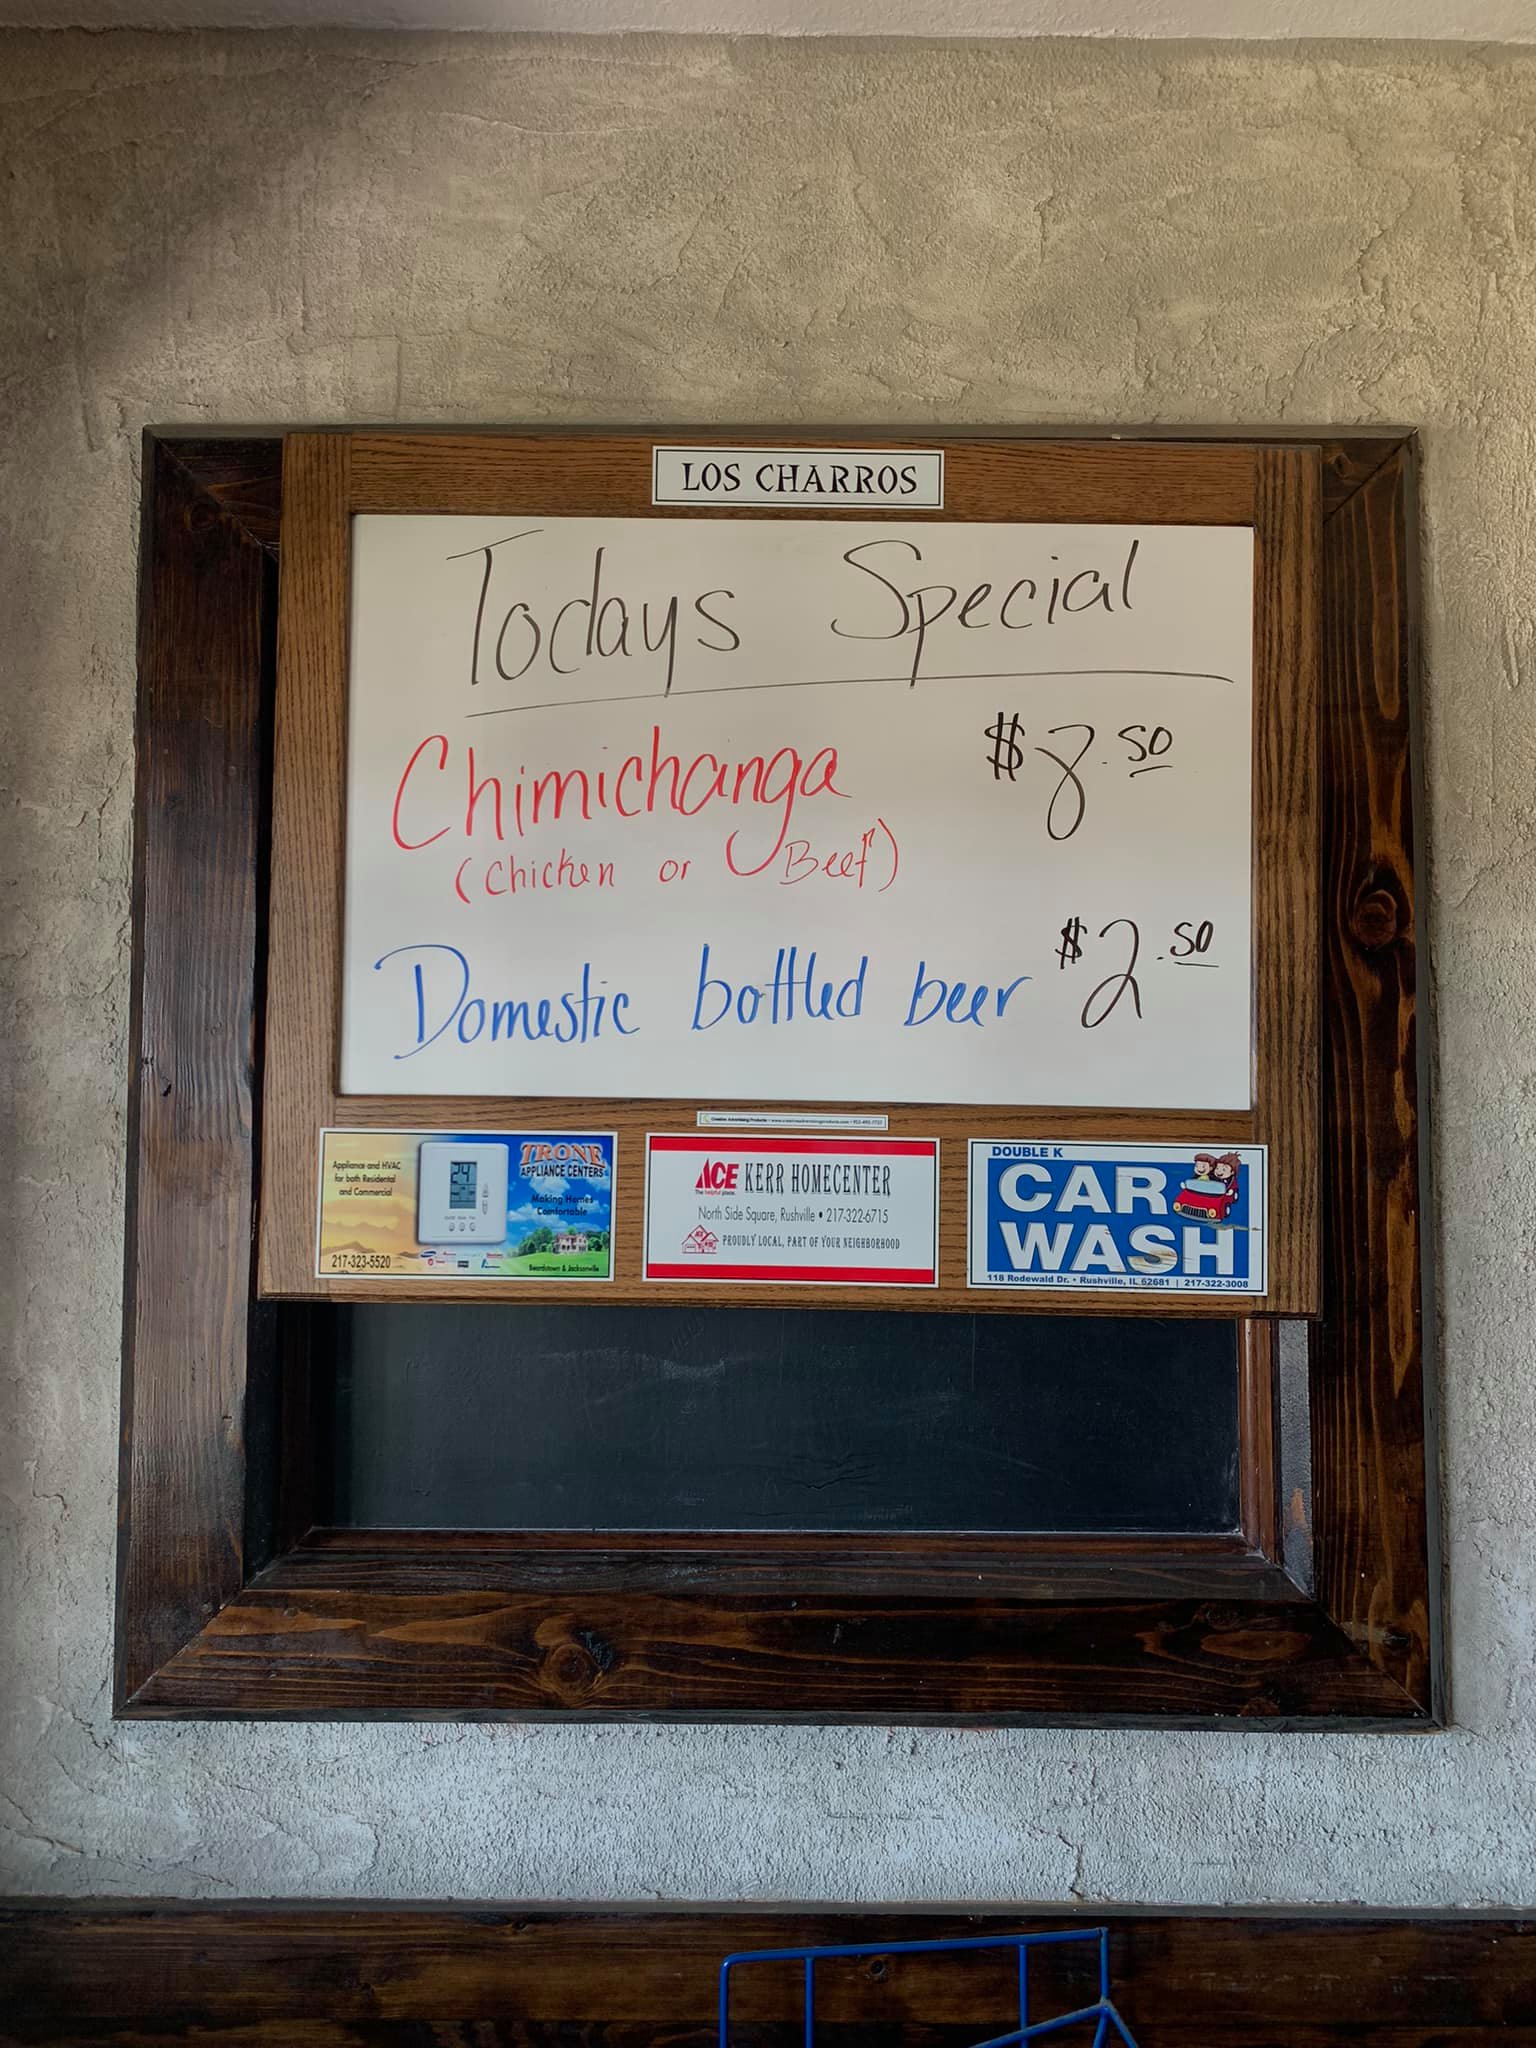 LOS CHARROS
Todays Special
Chimichanga $8.50
(Chicken or Beef)
Domestic bottled beer $2.50
Creative Advertising Products
Appliance and HVAC
for both Residential
and Commercial
24
217-323-5520
TRONE
APPLIANCE CENTERS
Making Homes
Comfortable
Beardstown & Jacksonville
ACE KERR HOMECENTER
The helpful place.
North Side Square, Rushville • 217-322-6715
PROUDLY LOCAL, PART OF YOUR NEIGHBORHOOD
DOUBLE K
CAR
WASH
118 Rodewald Dr. • Rushville, IL 62681 | 217-322-3008